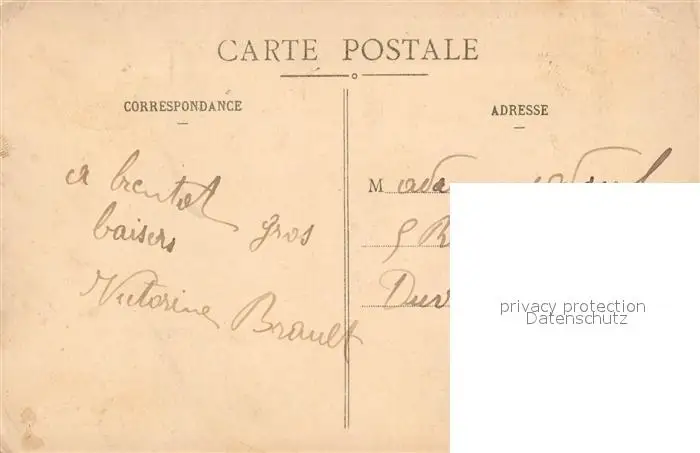 CARTE POSTALE
CORRESPONDANCE
a bientot
baisers gros
Victorine Brault
ADRESSE
M
privacy protection
Datenschutz